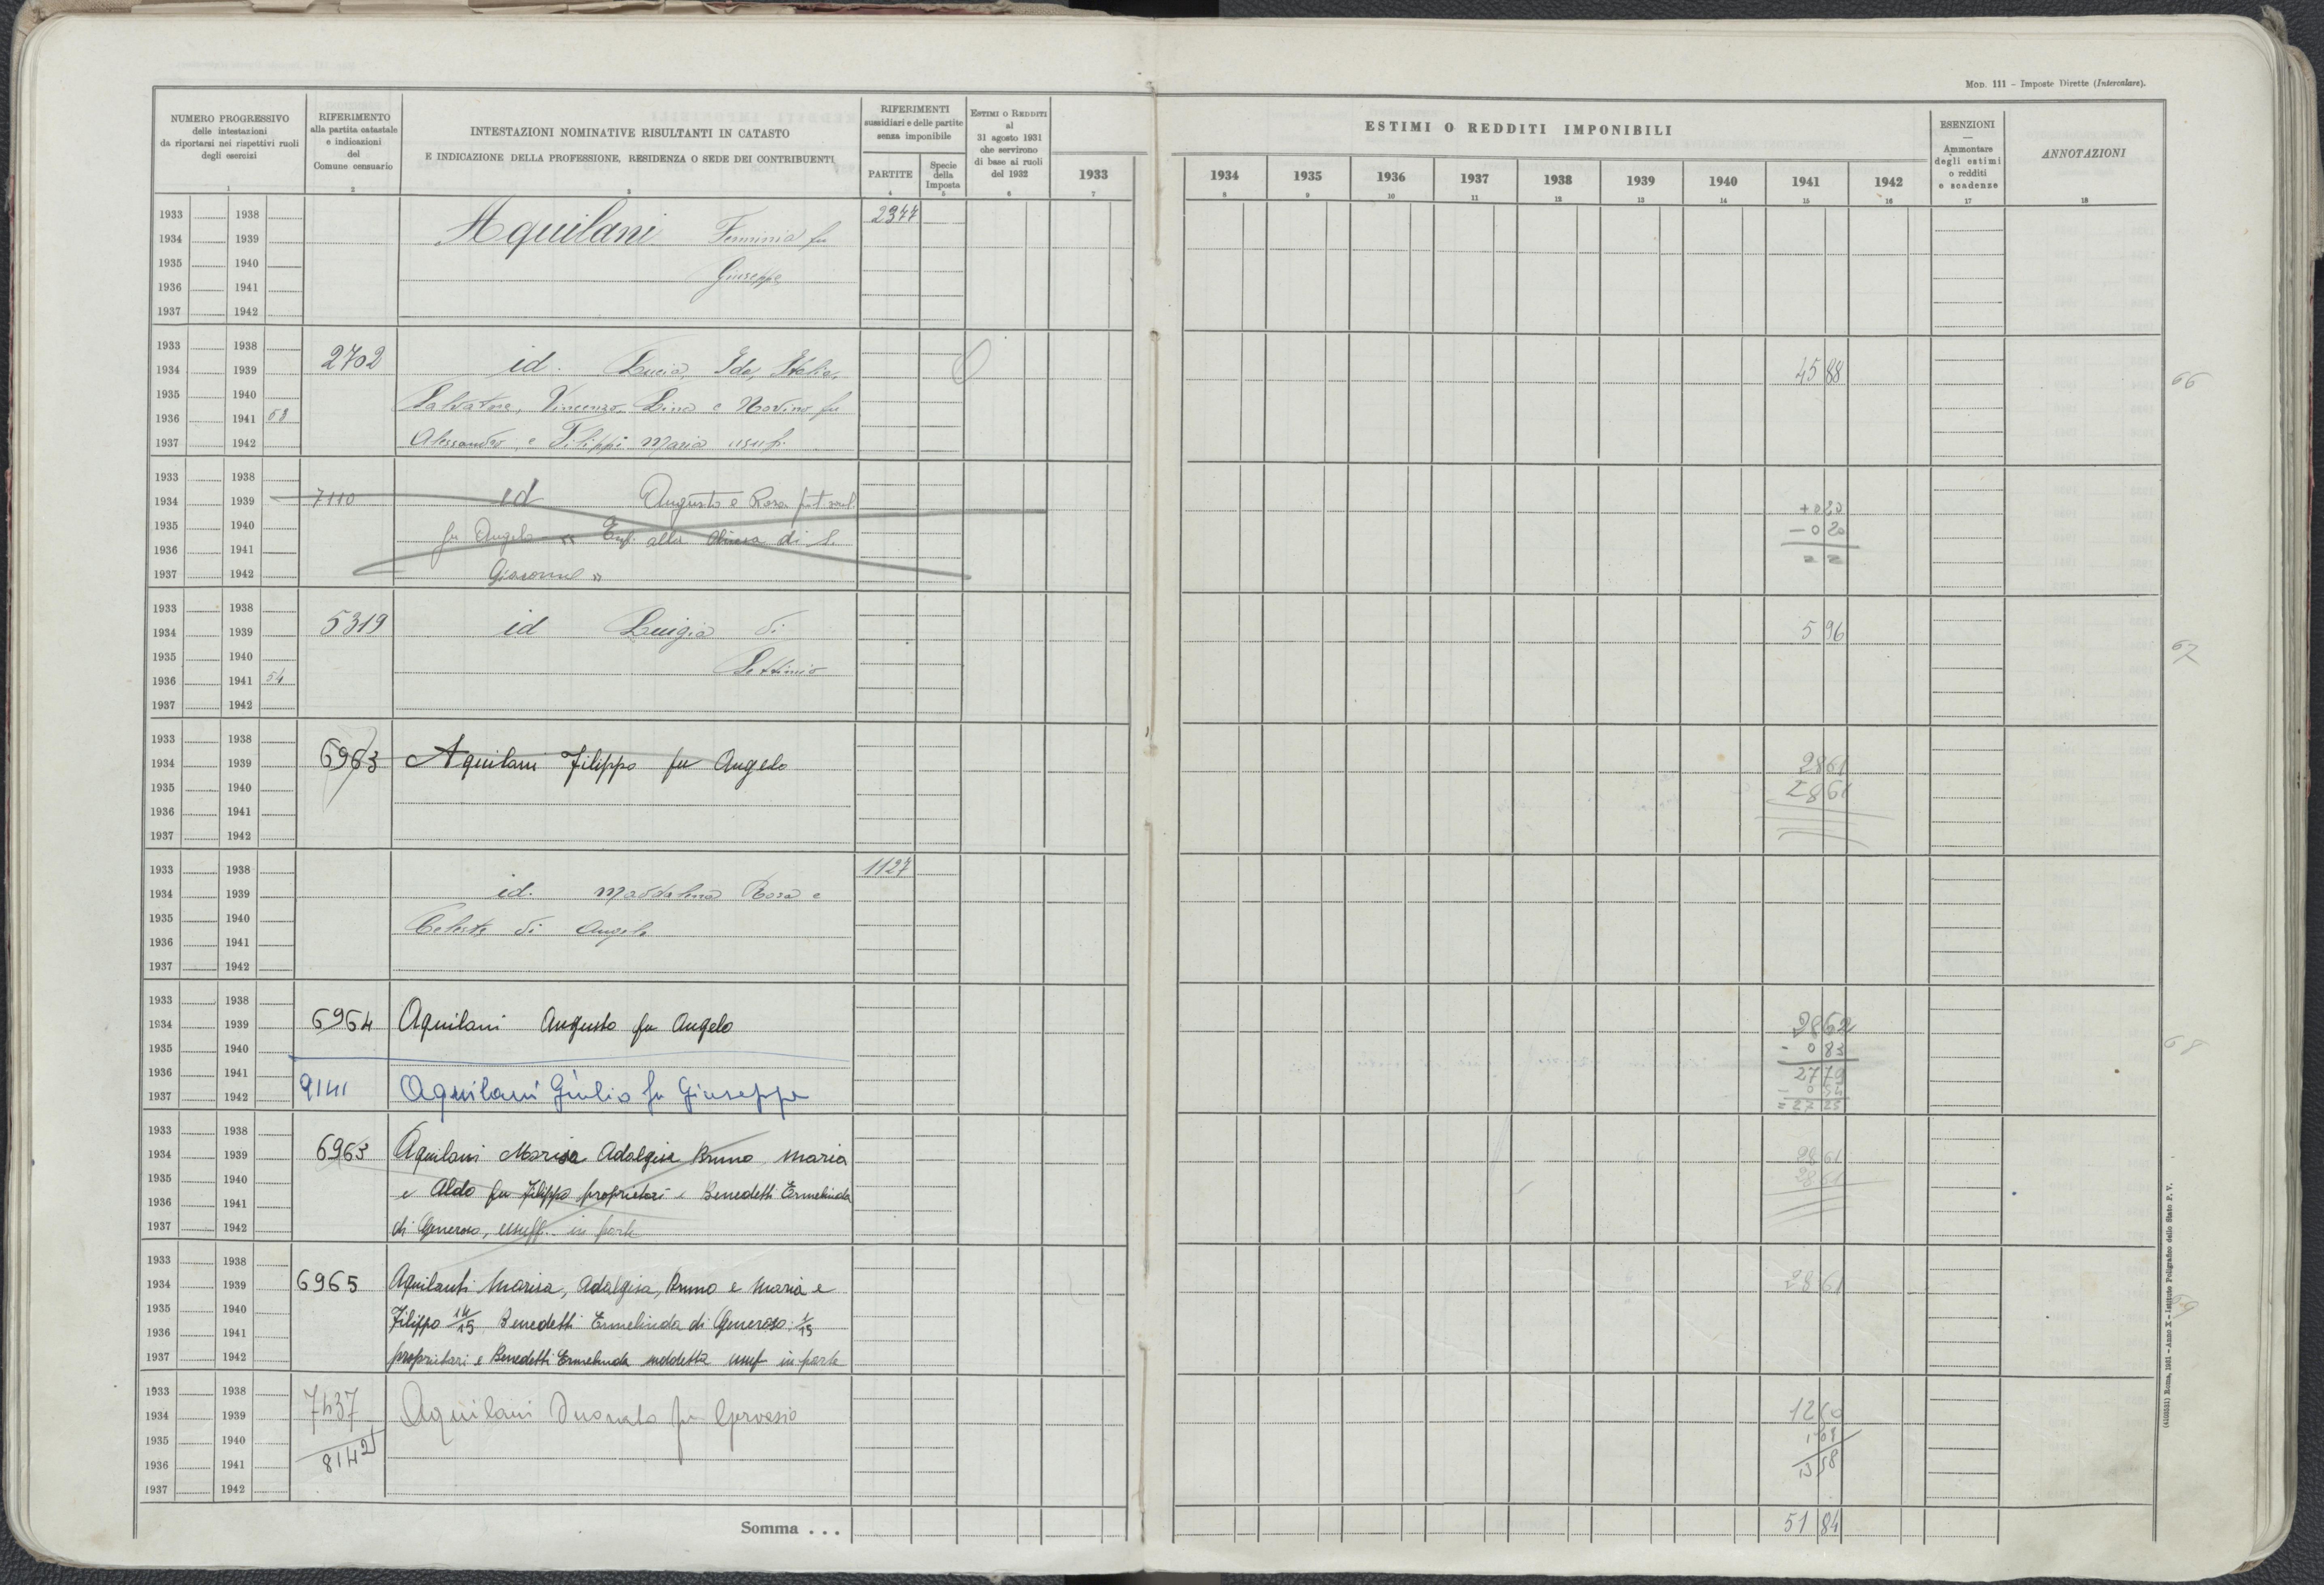 MOD. 111 – Imposte Dirette (Intercalare).
NUMERO PROGRESSIVO
delle intestazioni
da riportarsi nei rispettivi ruoli
degli esercizi
RIFERIMENTO
alla partita catastale
e indicazioni
del
Comune censuario
INTESTAZIONI NOMINATIVE RISULTANTI IN CATASTO
E INDICAZIONE DELLA PROFESSIONE, RESIDENZA O SEDE DEI CONTRIBUENTI
RIFERIMENTI
sussidiari e delle partite
senza imponibile
PARTITE
Specie
della
Imposta
ESTIMI O REDDITI
al
31 agosto 1931
che servirono
di base ai ruoli
del 1932
ESTIMI O REDDITI IMPONIBILI
1933 1934 1935 1936 1937 1938 1939 1940 1941 1942
ESENZIONI
—
Ammontare
degli estimi
o redditi
e scadenze
ANNOTAZIONI
1 2 3 4 5 6 7 8 9 10 11 12 13 14 15 16 17 18
1933 1938 2377
1934 1939 Aquilani fu
1935 1940 Giuseppe
1936 1941
1937 1942
1933 1938
1934 1939 2702 id. Lucia, Ida, Italia, 45 88 66
1935 1940 Salvatore, Vincenzo, Lina e fu
1936 1941 58
1937 1942 Alessandro, e Filippi Maria usuf.
1933 1938
1934 1939 7110 id Augusto e Rosa + 0 20
1935 1940 fu Angelo " Enf. alla Chiesa di S. – 0 20
1936 1941 = =
1937 1942 Giacomo "
1933 1938
1934 1939 5319 id Luigia di 5 96 67
1935 1940 Settimio
1936 1941 54
1937 1942
1933 1938
1934 1939 6963 Aquilani Filippo fu Angelo 28 61
1935 1940 28 61
1936 1941
1937 1942
1933 1938 1127
1934 1939 id. Maddalena Rosa e
1935 1940 Celeste di Angelo
1936 1941
1937 1942
1933 1938
1934 1939 6964 Aquilani Augusto fu Angelo 28 62
1935 1940 - 0 83 68
1936 1941 27 79
1937 1942 9141 Aquilani Giulio fu Giuseppe – 0 54
= 27 25
1933 1938
1934 1939 6963 Aquilani Marisa Adalgisa Bruno Maria 28 61
1935 1940 e Aldo fu Filippo proprietari e Benedetti Ermelinda 28 61
1936 1941
1937 1942 di Generoso, usuff. in parte
1933 1938
1934 1939 6965 Aquilanti Marisa, Adalgisa, Bruno e Maria e 28 61
1935 1940 Filippo 14/15 Benedetti Ermelinda di Generoso 1/15 69
1936 1941
1937 1942 proprietari e Benedetti Ermelinda suddetta usuf in parte
1933 1938
1934 1939 7437 Aquilani Donato fu Gervasio
1935 1940
1936 1941 8142
1937 1942 13 58
Somma . . . 51 84
(4103531) Roma, 1931 – Anno X – Istituto Poligrafico dello Stato P. V.